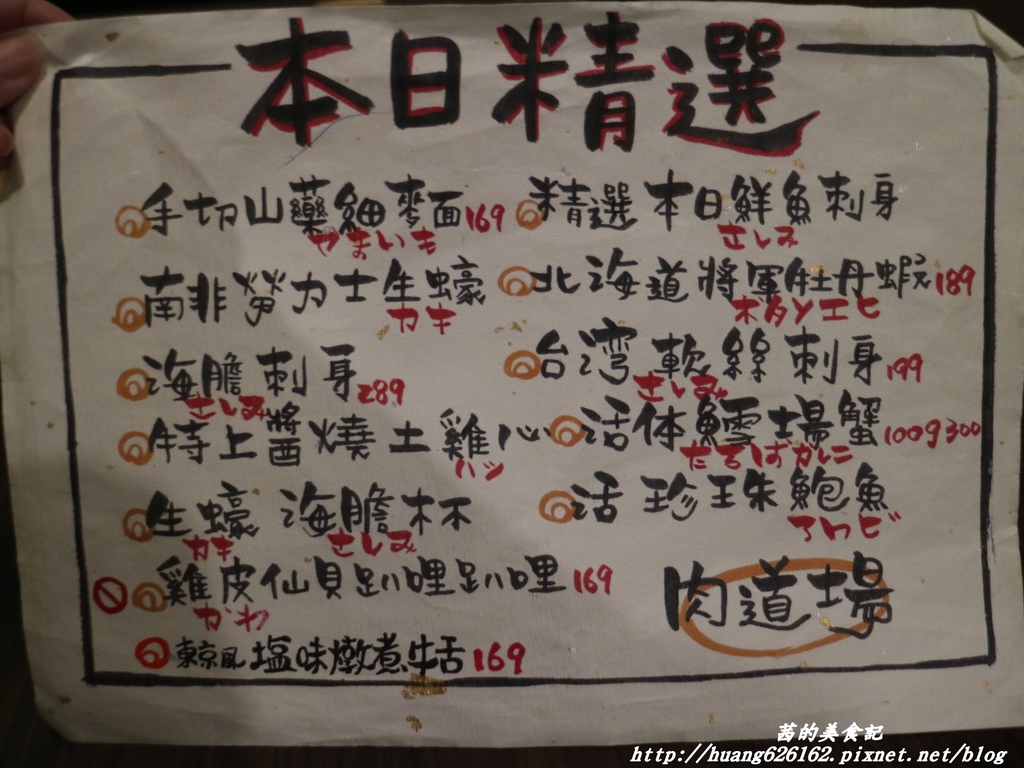 本日精選
手切山藥細麥面169
やまいも
南非勞力士生蠔
カキ
海膽刺身289
さしみ
特上醬燒土雞心
ハツ
生蠔海膽杯
カキ さしみ
雞皮仙貝趴哩趴哩169
かわ
東京風塩味燉煮牛舌169
精選本日鮮魚刺身
さしみ
北海道將軍牡丹蝦189
ボタンエビ
台湾軟絲刺身199
さしみ
活体鱈場蟹100g300
たらばかに
活珍珠鮑魚
アワビ
肉道場
茜的美食記
http://huang626162.pixnet.net/blog